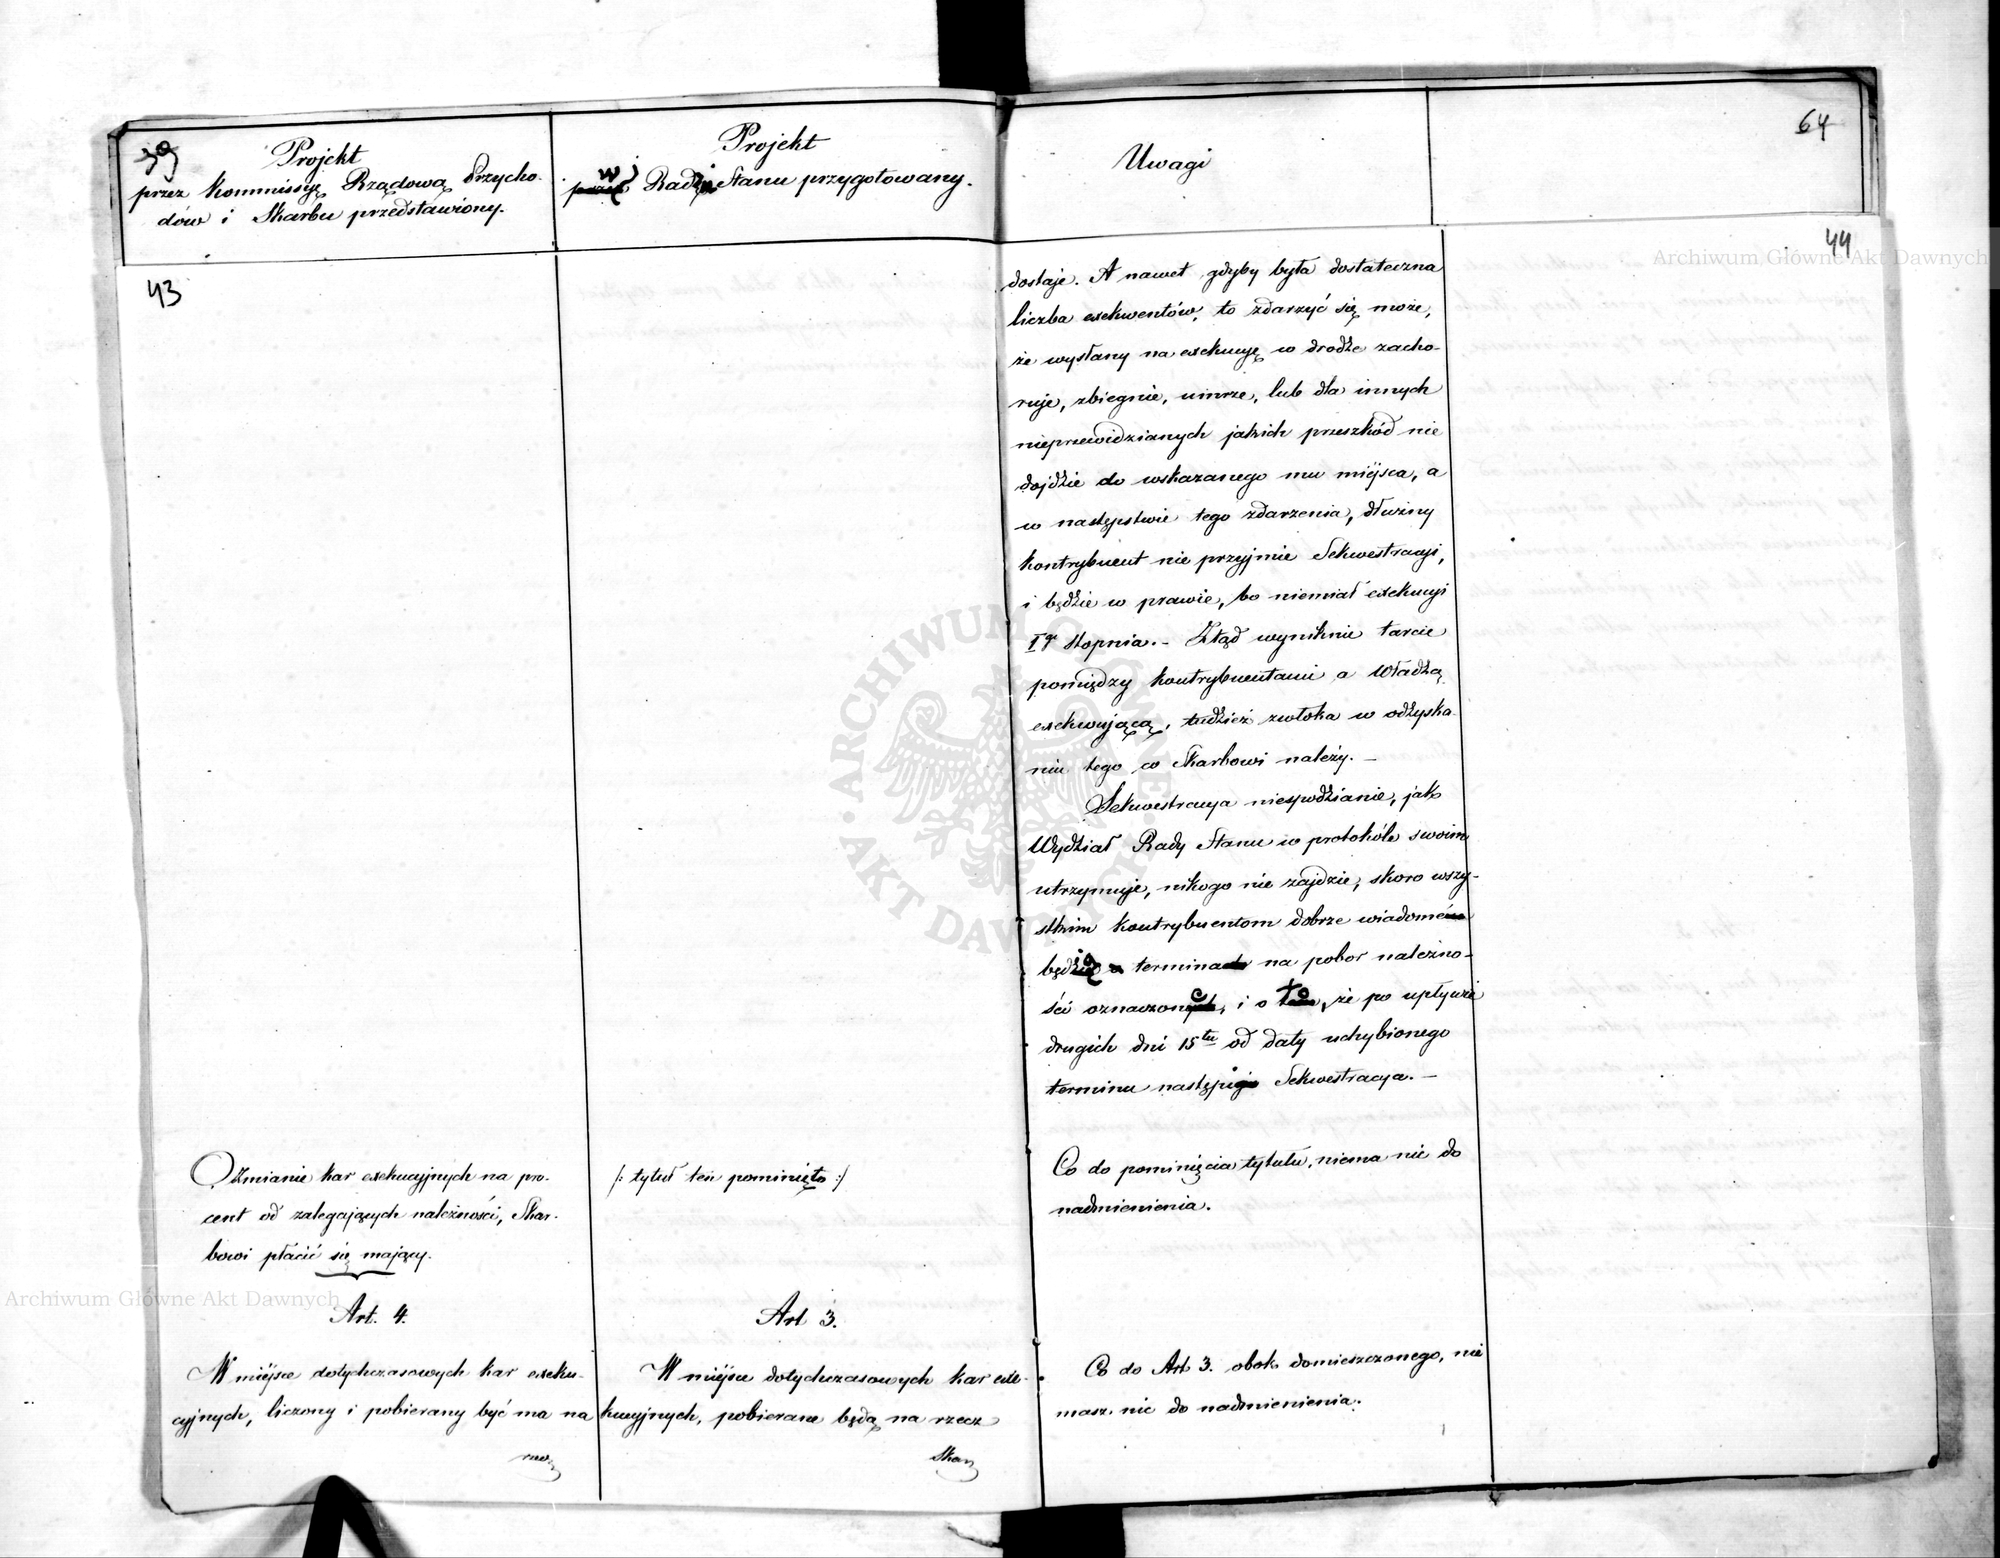 39
Projekt
przez Kommissyę Rządową Przycho-
dów i Skarbu przedstawiony.
Projekt
w Radzie Stanu przygotowany.
Uwagi
64
43
44
dostaje. A nawet gdyby była dostateczna
liczba exekwentów, to zdarzyć się może,
że wysłany na exekucyę w drodze zacho-
ruje, zbiegnie, umrze, lub dla innych
nieprzewidzianych jakich przeszkód nie
dojdzie do wskazanego mu miejsca, a
w następstwie tego zdarzenia, dłużny
kontrybuent nie przyjmie Sekwestracyi,
i będzie w prawie, bo niemiał exekucyi
Igo stopnia. – Ztąd wyniknie tarcie
pomiędzy kontrybuentami a Władzą
exekwującą, tudzież zwłoka w odzyska-
niu tego co Skarbowi należy. –
Sekwestracya niespodzianie, jak
Wydział Rady Stanu w protokóle swoim
utrzymuje, nikogo nie zajdzie, skoro wszy-
stkim kontrybuentom dobrze wiadome
będą termina na pobor należno-
ści oznaczone, i o to, że po upływie
drugich dni 15tu od daty uchybionego
terminu następuje Sekwestracya. –
O Zmianie kar exekucyjnych na pro-
cent od zalegających należności, Skar-
bowi płacić się mający.
/: tytuł ten pominięto :/
Co do pominięcia tytułu, niema nic do
nadmienienia.
Art. 4.
W miejsce dotychczasowych kar exeku-
cyjnych, liczony i pobierany być ma na
Art 3.
W miejsce dotychczasowych kar exe-
kucyjnych, pobierane będą na rzecz
Skar
Co do Art 3. obok domieszczonego, nie
masz nic do nadmienienia.
Archiwum Główne Akt Dawnych
Archiwum Główne Akt Dawnych
ARCHIWUM GŁÓWNE AKT DAWNYCH